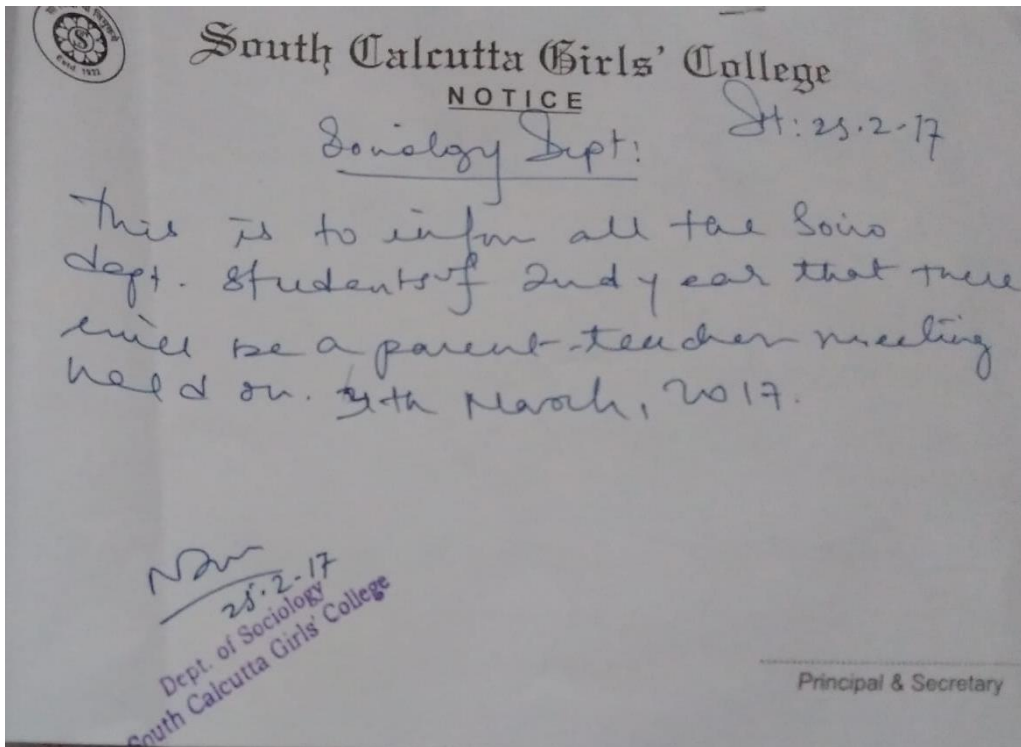 Estd. 1932
South Calcutta Girls' College
NOTICE
Dt: 25.2.17
Sociology Dept:
This is to infom all the Socio
dept. students of 2nd year that there
will be a parent-teacher meeting
held on. 4th March, 2017.
25.2.17
Dept. of Sociology
South Calcutta Girls' College
Principal & Secretary